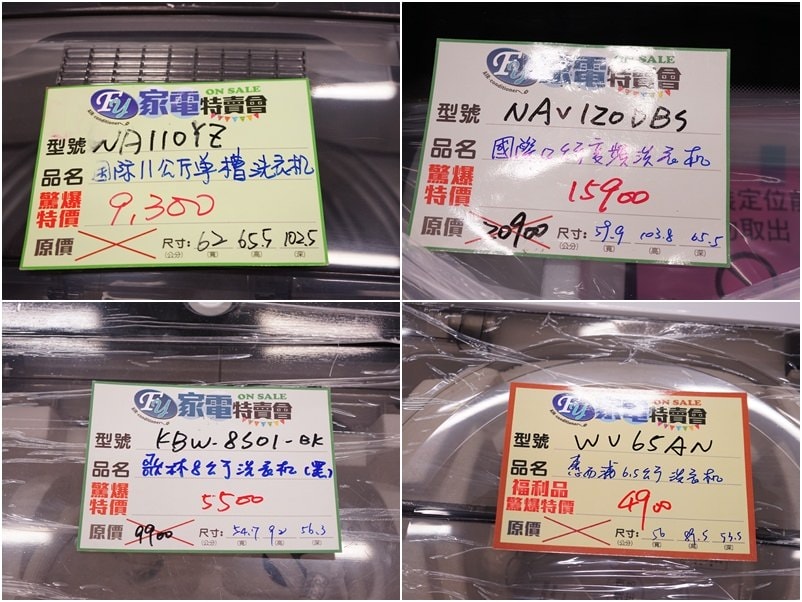 FU 家電特賣會 ON SALE
air conditioner
型號 NA110YZ
品名 国际11公斤单槽洗衣机
驚爆特價 9,300
原價 尺寸: 62 65.5 102.5
(公分) (寬) (高) (深)
FU 家電特賣會 ON SALE
air conditioner
型號 NAV120DBS
品名 國際12公斤变頻洗衣机
驚爆特價 15900
原價 20900 尺寸: 59.9 103.8 65.5
(公分) (寬) (高) (深)
定位前
取出
FU 家電特賣會 ON SALE
air conditioner
型號 KBW-8S01-BK
品名 歌林8公斤洗衣机(黑)
驚爆特價 5500
原價 9900 尺寸: 54.7 92 56.3
(公分) (寬) (高) (深)
FU 家電特賣會 ON SALE
air conditioner
型號 WV65AN
品名 惠而浦6.5公斤洗衣机
福利品
驚爆特價 4900
原價 尺寸: 56 89.5 53.5
(公分) (寬) (高) (深)